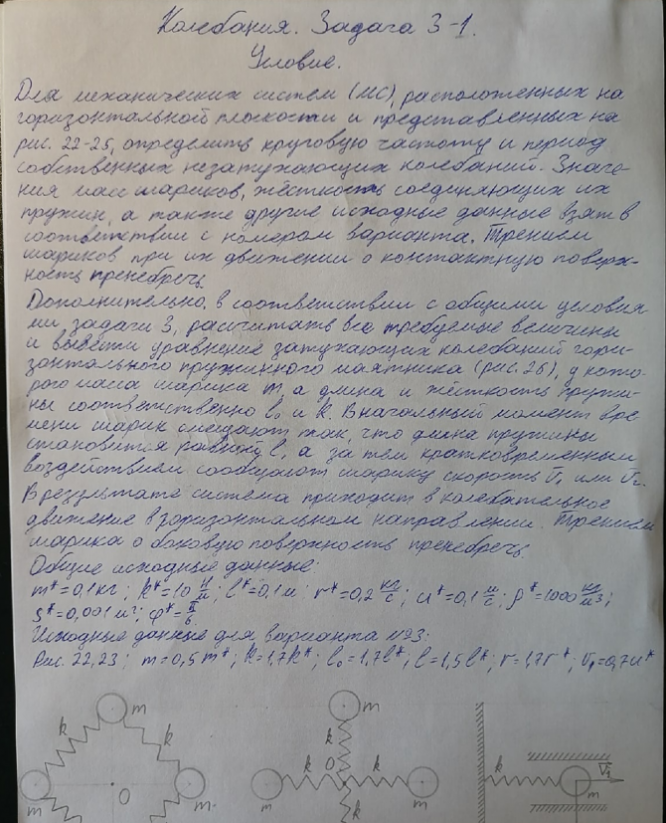 Колебания. Задача 3-1.
Условие.
Для механических систем (МС), расположенных на
горизонтальной плоскости и представленных на
рис. 22-25, определить круговую частоту и период
собственных незатухающих колебаний. Значе-
ния масс шариков, жёсткость соединяющих их
пружин, а также другие исходные данные взять в
соответствии с номером варианта. Трением
шариков при их движении о контактную поверх-
ность пренебречь.
Дополнительно, в соответствии с общими условия
ми задачи 3, рассчитать все требуемые величины
и вывести уравнение затухающих колебаний гори-
зонтального пружинного маятника (рис. 26), у кото-
рого масса шарика m, а длина и жёсткость пружи-
ны соответственно l₀ и k. В начальный момент вре
мени шарик смещают так, что длина пружины
становится равной l, а за тем кратковременным
воздействием сообщают шарику скорость v⃗₁ или v⃗₂.
В результате система приходит в колебательное
движение в горизонтальном направлении. Трением
шарика о боковую поверхность пренебречь.
Общие исходные данные:
m*=0,1кг; k*=10 Н/м; l*=0,1м; r*=0,2 кг/с; u*=0,1 м/с; ρ*=1000 кг/м³;
S*=0,001 м²; φ*=π/6.
Исходные данные для варианта №23:
Рис. 22,23; m=0,5m*; k=1,7k*; l₀=1,7l*; l=1,5l*; r=1,7r*; v₁=0,7u*
m m
k k k k v⃗₁
O k k O k m
m m m k m